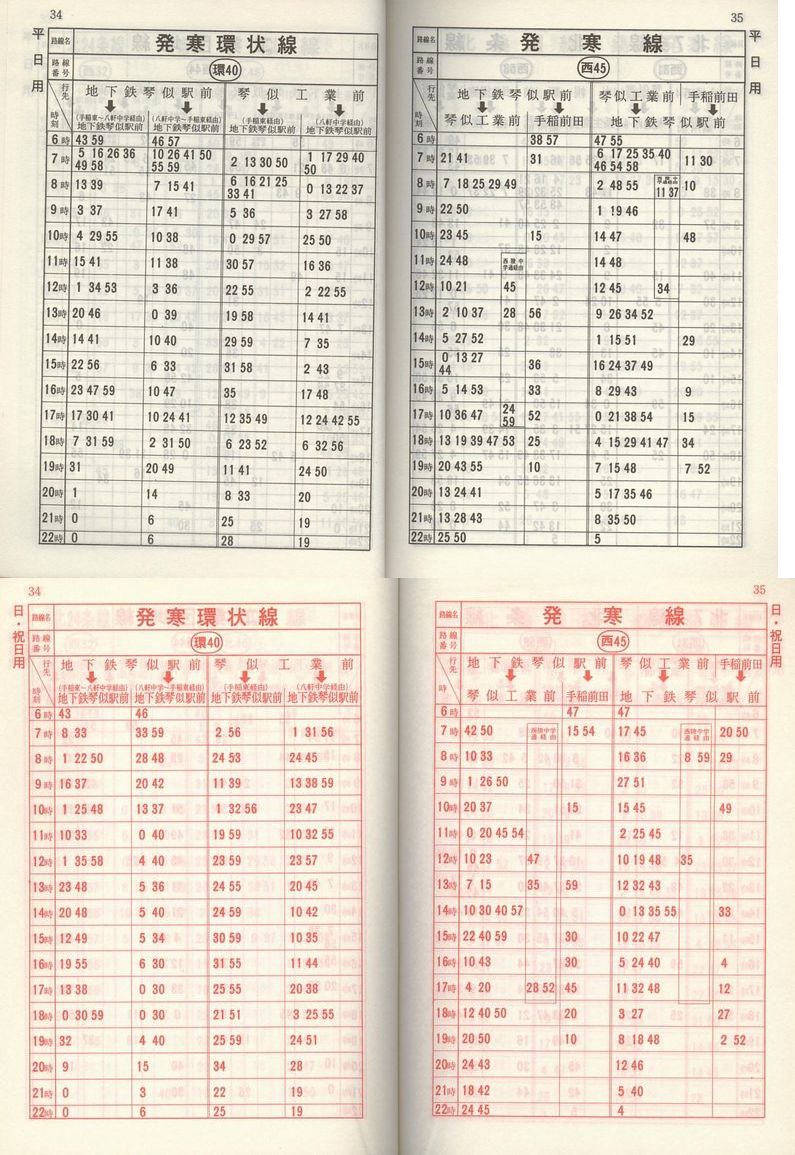 34
平日用
路線名 発寒環状線
路線番号 環40
行先 時刻 地下鉄琴似駅前 琴似工業前
(手稲東〜八軒中学経由) 地下鉄琴似駅前 (八軒中学〜手稲東経由) 地下鉄琴似駅前 (手稲東経由) 地下鉄琴似駅前 (八軒中学経由) 地下鉄琴似駅前
6時 43 59 46 57
7時 5 16 26 36 49 58 10 26 41 50 55 59 2 13 30 50 1 17 29 40 50
8時 13 39 7 15 41 6 16 21 25 33 41 0 13 22 37
9時 3 37 17 41 5 36 3 27 58
10時 4 29 55 10 38 0 29 57 25 50
11時 15 41 11 38 30 57 16 36
12時 1 34 53 3 36 22 55 2 22 55
13時 20 46 0 39 19 58 14 41
14時 14 41 10 40 29 59 7 35
15時 22 56 6 33 31 58 2 43
16時 23 47 59 10 47 35 17 48
17時 17 30 41 10 24 41 12 35 49 12 24 42 55
18時 7 31 59 2 31 50 6 23 52 6 32 56
19時 31 20 49 11 41 24 50
20時 1 14 8 33 20
21時 0 6 25 19
22時 0 6 28 19
35
平日用
路線名 発寒線
路線番号 西45
行先 時刻 地下鉄琴似駅前 琴似工業前 手稲前田
琴似工業前 手稲前田 地下鉄琴似駅前
6時 38 57 47 55
7時 21 41 31 6 17 25 35 40 46 54 58 11 30
8時 7 18 25 29 49 2 48 55 西陵中学通経由 11 37 10
9時 22 50 1 19 46
10時 23 45 15 14 47 48
11時 24 48 西陵中学通経由 14 48
12時 10 21 45 12 45 34
13時 2 10 37 28 56 9 26 34 52
14時 5 27 52 1 15 51 29
15時 0 13 27 44 36 16 24 37 49
16時 5 14 53 33 8 29 43 9
17時 10 36 47 24 59 52 0 21 38 54 15
18時 13 19 39 47 53 25 4 15 29 41 47 34
19時 20 43 55 10 7 15 48 7 52
20時 13 24 41 5 17 35 46
21時 13 28 43 8 35 50
22時 25 50 5
34
日・祝日用
路線名 発寒環状線
路線番号 環40
行先 時刻 地下鉄琴似駅前 琴似工業前
(手稲東〜八軒中学経由) 地下鉄琴似駅前 (八軒中学〜手稲東経由) 地下鉄琴似駅前 (手稲東経由) 地下鉄琴似駅前 (八軒中学経由) 地下鉄琴似駅前
6時 43 46
7時 8 33 33 59 2 56 1 31 56
8時 1 22 50 28 48 24 53 24 45
9時 16 37 20 42 11 39 13 38 59
10時 1 25 48 13 37 1 32 56 23 47
11時 10 33 0 40 19 59 10 32 55
12時 1 35 58 4 40 23 59 23 57
13時 23 48 5 36 24 55 20 45
14時 20 48 5 40 24 59 10 42
15時 12 49 5 34 30 59 10 35
16時 19 55 6 30 31 55 11 44
17時 13 38 0 30 25 55 20 38
18時 0 30 59 0 30 21 51 3 25 55
19時 32 4 40 25 59 24 51
20時 9 15 34 28
21時 0 3 22 19
22時 0 6 25 19
35
日・祝日用
路線名 発寒線
路線番号 西45
行先 時刻 地下鉄琴似駅前 琴似工業前 手稲前田
琴似工業前 手稲前田 地下鉄琴似駅前
6時 47 47
7時 42 50 西陵中学通経由 15 54 17 45 西陵中学通経由 20 50
8時 10 33 16 36 8 59 29
9時 1 26 50 27 51
10時 20 37 15 15 45 49
11時 0 20 45 54 2 25 45
12時 10 23 47 10 19 48 35
13時 7 15 35 59 12 32 43
14時 10 30 40 57 0 13 35 55 33
15時 22 40 59 30 10 22 47
16時 10 43 30 5 24 40 4
17時 4 20 28 52 45 11 32 48 12
18時 12 40 50 20 3 27 27
19時 20 50 10 8 18 48 2 52
20時 24 43 12 46
21時 18 42 5 40
22時 24 45 4